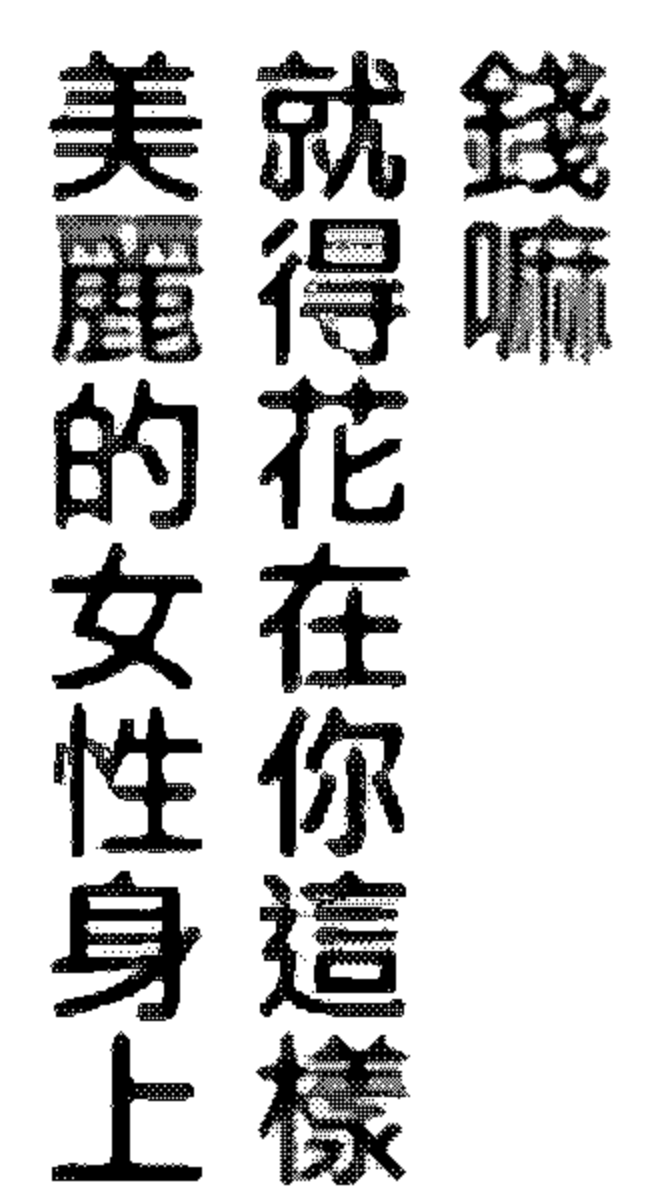 錢嘛
就得花在你這樣
美麗的女性身上